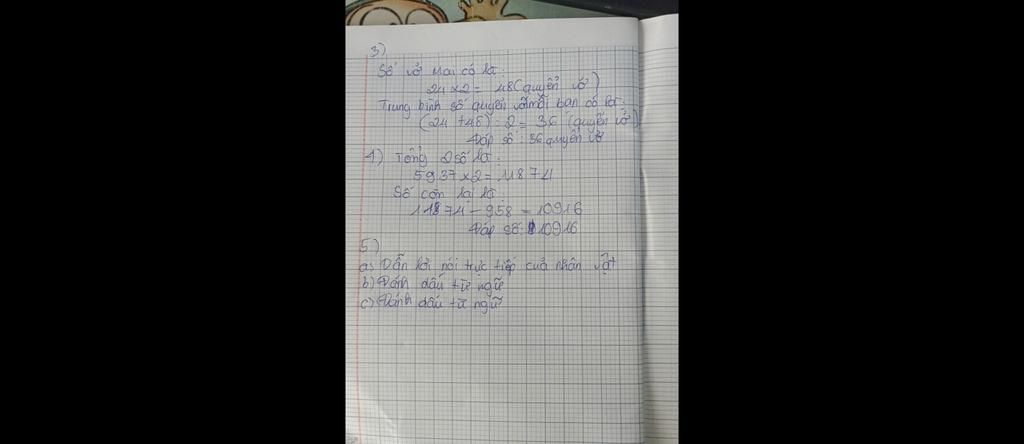 3)
Số vở Mai có là:
24 x 2 = 48 (quyển vở)
Trung bình số quyển vở mỗi bạn có là:
(24 + 48) : 2 = 36 (quyển vở)
Đáp số: 36 quyển vở
4) Tổng 2 số là:
5937 x 2 = 11874
Số còn lại là:
11874 - 958 = 10916
Đáp số: 10916
5)
a) Dẫn lời nói trực tiếp của nhân vật
b) Đánh dấu từ ngữ
c) Đánh dấu từ ngữ